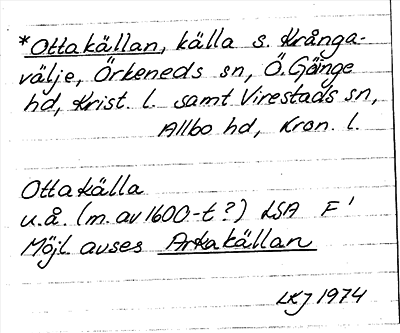 *Ottakällan, källa s. Krånga-
välje, Örkeneds sn, Ö. Göinge
hd, Krist. l. samt Virestads sn,
Allbo hd, Kron. l.
Ottakälla
u.å. (m. av 1600-t?) LSA F'
Möjl. avses Arkakällan
LKJ 1974